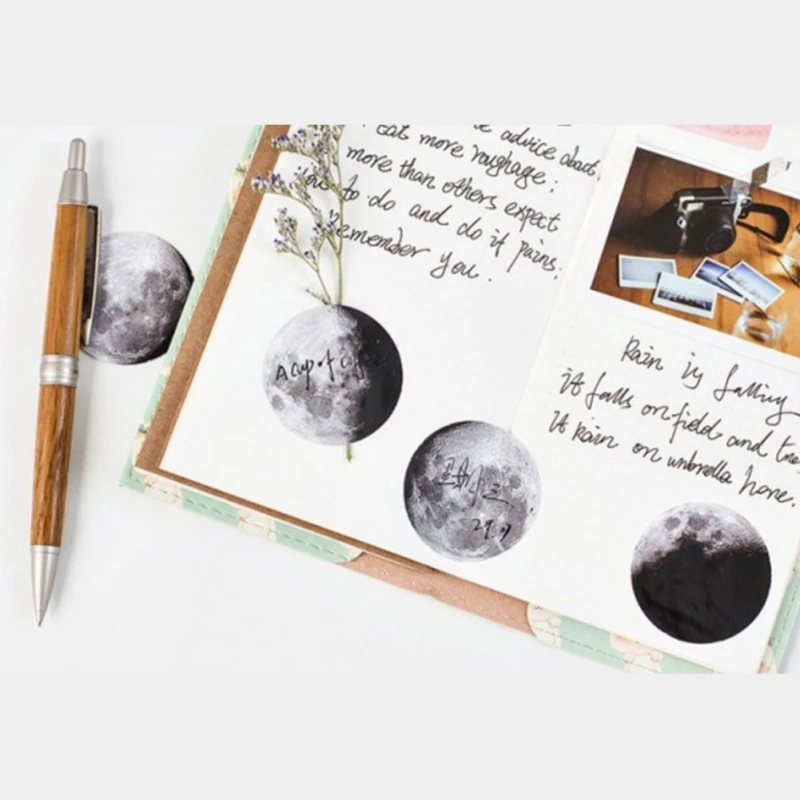 advice about
eat more roughage;
more than others expect
you to do and do it pains;
remember you.
A cup of coffee
Rain is falling
it falls on field and tree
It Rain on umbrella here.